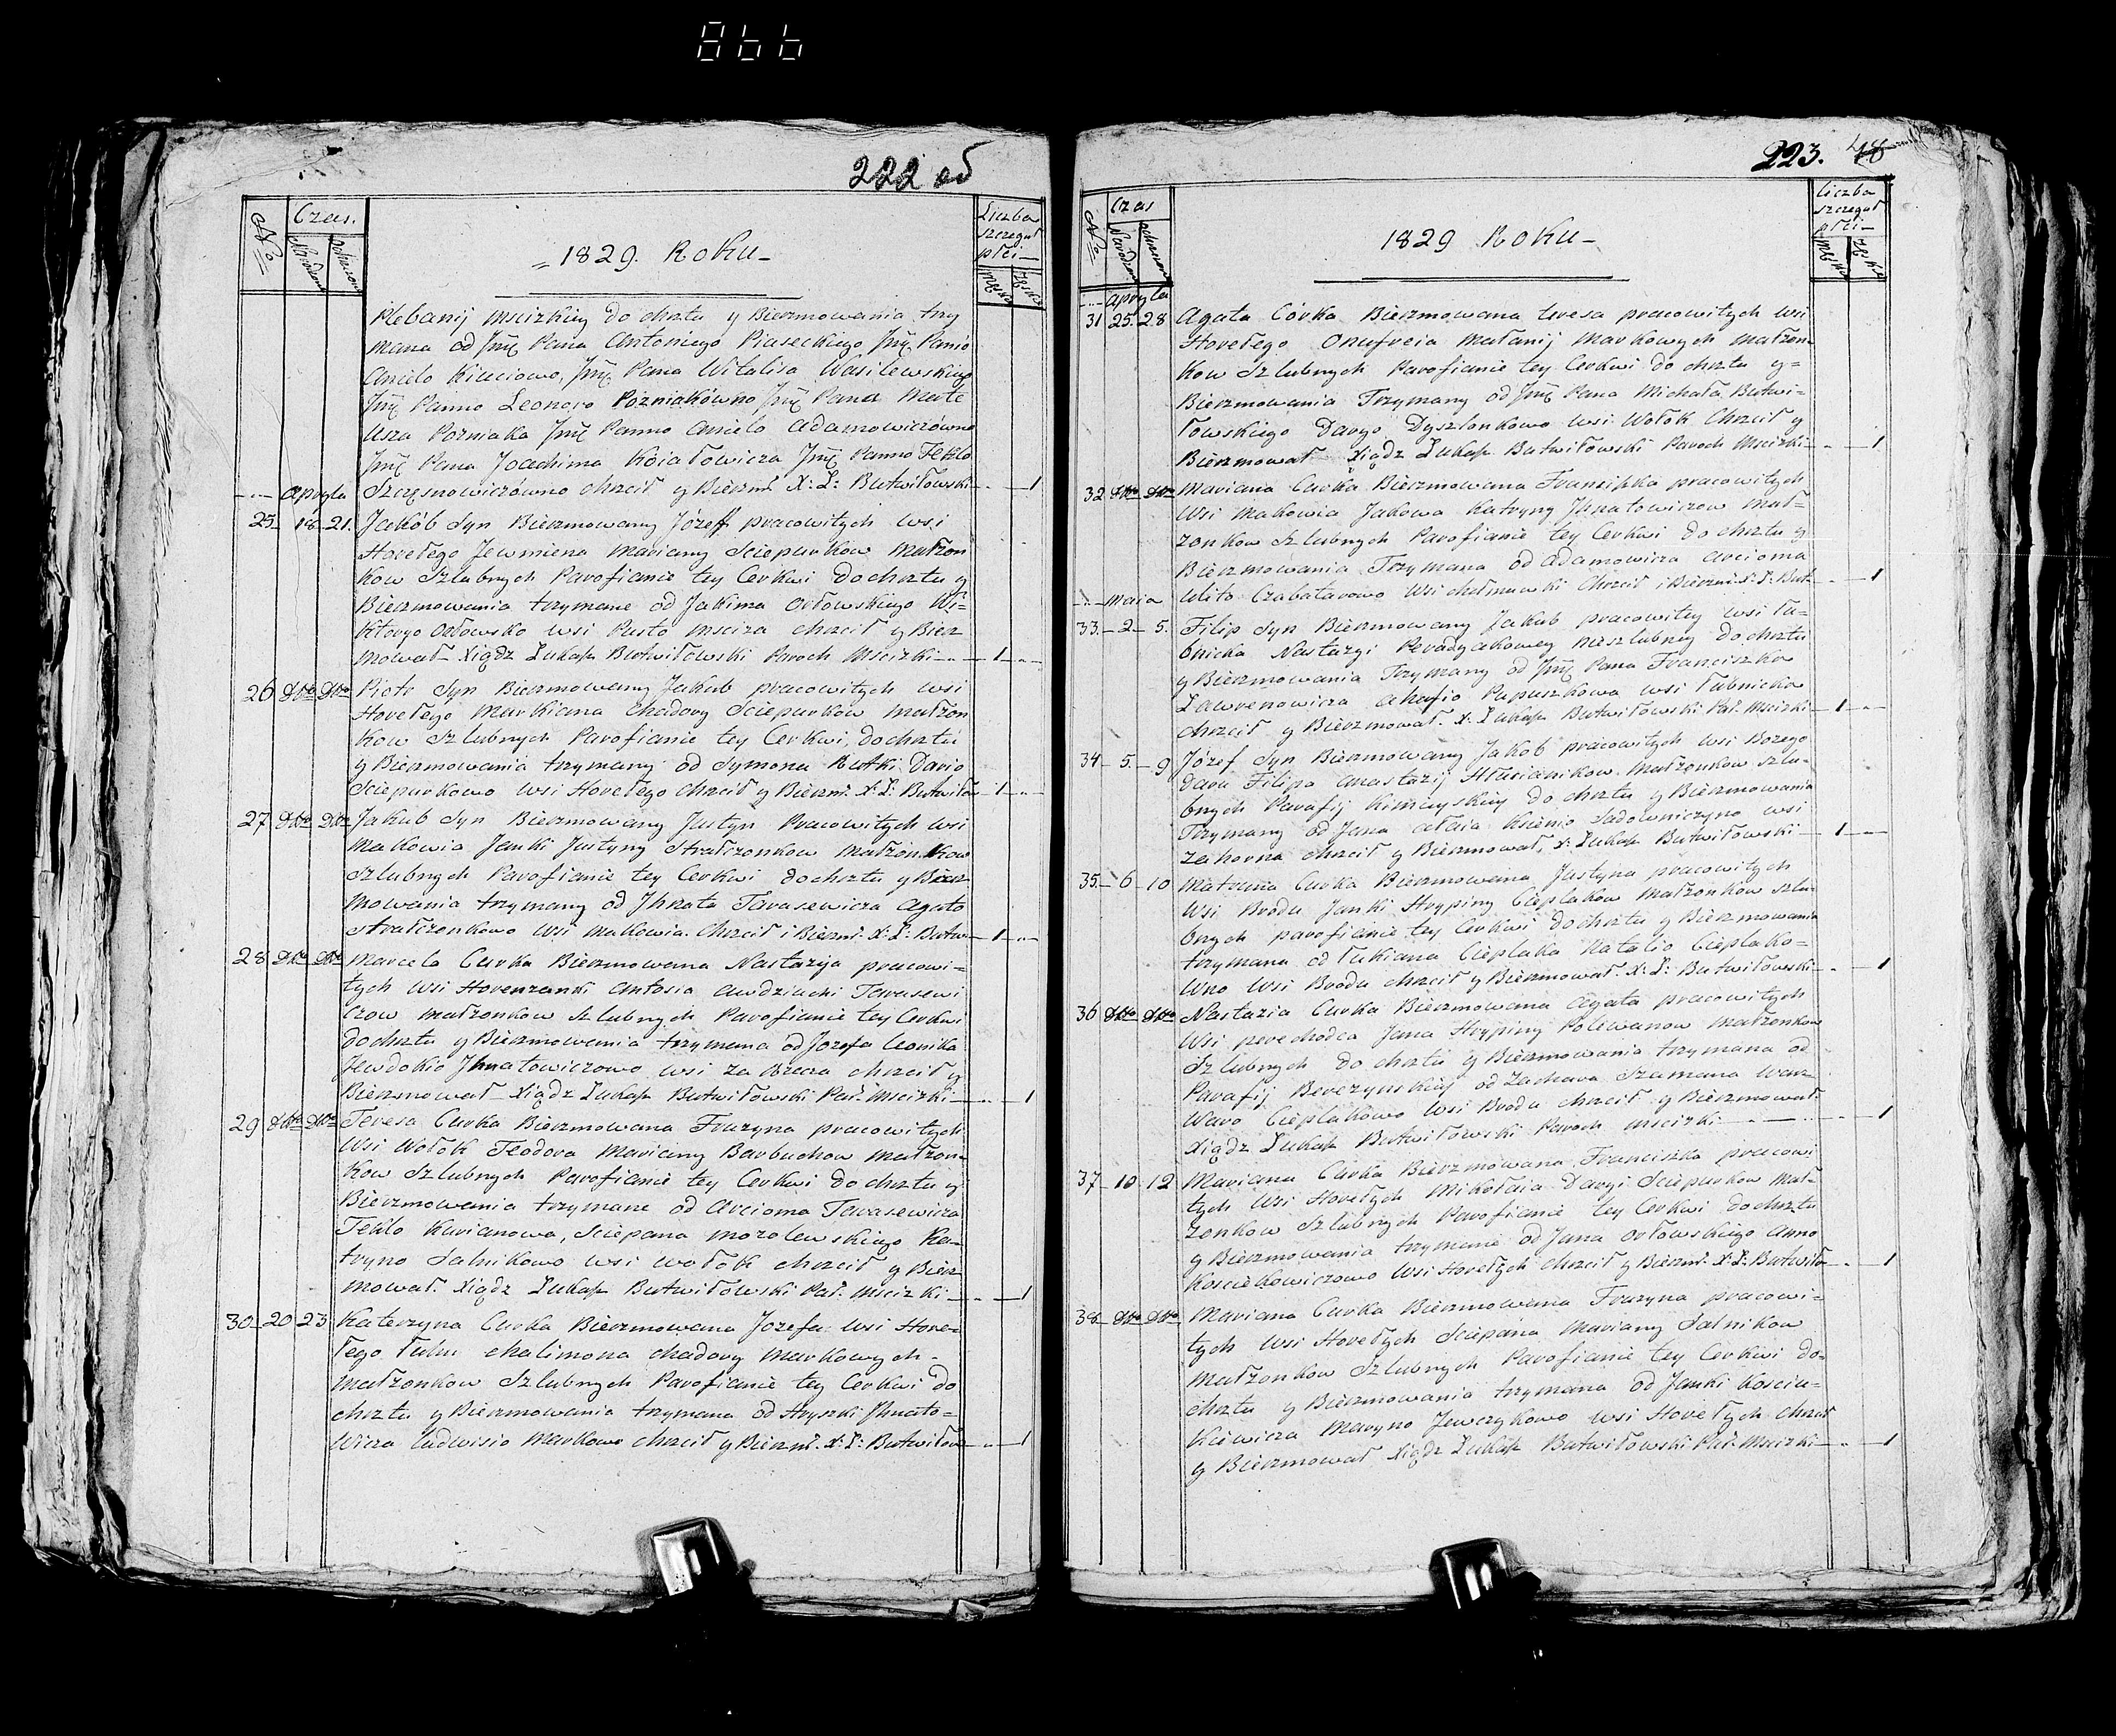 866
222 об
No
Czas.
Narodzenia
ochrzczenia
1829. Roku
Liczba
szczegul
płci
męska
żeńska
Plebanij Mscizkiey do chrztu y Bierzmowania trzy
mana od Jmć Pana Antoniego Piaseckiego Jmć Panio
Anielo Kiuciowo, Jmć Pana Witalisa Wasilewskiego
Jmć Panno Leonoro Pożniakówno Jmć Pana Mate
usza Pożniaka Jmć Panno Anielo Adamowiczówno
Jmć Pana Joachima Koiałowicza Jmć Panno Teklo
Szczęsnowiczówno chrzcił y Bierzm: X: Ł: Butwiłowski 1
Apryla
25 18 21. Jakób Syn Bierzmowany Józeff pracowitych wsi
Horełego Jewmiena Marianny Sciepurkow Małżon
kow Szlubnych Parofianie tey Cerkwi do chrztu y
Bierzmowania trzymane od Jakima Orłowskiego Wi=
ktoryo Orłowsko wsi Pusto Msciza chrzcił y Bierz
mował Xiądz Łukasz Butwiłowski Paroch Mscizki 1
26 Dtto Dtto Piotr Syn Bierzmowany Jakub pracowitych wsi
Horełego Markiana Chadory Sciepurkow małżon
kow Szlubnych Parofianie tey Cerkwi, do chrztu
y Bierzmowania trzymany od Symona Rutki Dario
Sciepurkowo wsi Horełego chrzcił y Bierzm: X: Ł: Butwiłow 1
27 Dtto Dtto Jakub Syn Bierzmowany Justyn Pracowitych wsi
Makowia Janki Justyny Strałczonkow Małżonkow
Szlubnych Parofianie tey Cerkwi do chrztu y Bierz
mowania trzymany od Jhnata Tarasewicza Agato
Strałczonkowo wsi Makowia. Chrzcił i Bierzm: X: Ł: Butw 1
28 Dtto Dtto Marcela Curka Bierzmowana Nastazija pracowi=
tych wsi Horenzanki Antosia Audziuchi Tarasewi
czow małżonkow Szlubnych Parofianie tey Cerkwi
do chrztu y Bierzmowania trzymana od Jozefa Leonika
Hewdokio Jhnatowiczowo wsi Za Brzeza chrzcił y
Bierzmował Xiądz Łukasz Butwiłowski Par: Mscizki 1
29 Dtto Dtto Teresa Curka Bierzmowana Fruzyna pracowitych
wsi Wołok Teodora Marianny Barbuchow małżon=
kow Szlubnych Parofianie tey Cerkwi do chrztu y
Bierzmowania trzymane od Arcioma Tarasewicza
Teklo Kurianowo, Sciepana Mozolewskiego Ka=
tryno Salnikowo wsi Wołok chrzcił y Bierz
mował Xiądz Łukasz Butwiłowski Par: Mscizki 1
30 20 23 Katerzyna Curka Bierzmowana Jozefa wsi Hore=
łego Chalimona Chadory Markowych
Małżonkow Szlubnych Parofianie tey Cerkwi do
chrztu y Bierzmowania trzymana od Hryszki Jhnato=
wicza Ludwisio Markowo chrzcił y Bierzm: X: Ł: Butwiłow 1
223. 48
No
Czas
Narodzenia
ochrzczenia
1829 Roku
Liczba
szczegul
płci
męska
żeńska
Apryla
31 25. 28 Agata Córka Bierzmowana Teresa pracowitych wsi
Horełego Onufreia Małanij Markowych małżon
kow Szlubnych Parofianie tey Cerkwi do chrztu y=
Bierzmowania Trzymany od Jmć Pana Michała Butwi=
łowskiego Daryo Dyszlonkowo wsi Wołok Chrzcił y
Bierzmował Xiądz Łukasz Butwiłowski Paroch Mscizki 1
32 Dtto Dtto Mariana Curka Bierzmowana Franciszka pracowitych
wsi Makowia Jakowa Katryny Jhnatowiczow Mał=
zonkow Szlubnych Parofianie tey Cerkwi do chrztu y
Bierzmowania Trzymana od Adamowicza Arcioma
Ulito Czabatarowo wsi Chełmowki Chrzcił i Bierzm: X: Ł: But 1
Maia
33. 2 5. Filip Syn Bierzmowany Jakub pracowitey wsi Łu=
bnicka Nastazyi Peradyakowey nieszlubney do chrztu
y Bierzmowania Trzymany od Jmć Pana Franciszka
Ławrenowicza Ahafio Papuszkowa wsi Łubnicka
chrzcił y Bierzmował. X: Łukasz Butwiłowski Par. Mscizki 1
34 5. 9 Józef Syn Bierzmowany Jakob pracowitych wsi Bożego
Daru Filipa Anastazij Hłusianikow Małżonkow szlu=
bnych Parafij Kimiayskiey do chrztu y Bierzmowania
Trzymany od Jana Ałaia Ksienio Sadowniczyno wsi
Zahorna chrzcił y Bierzmował, X: Łukasz Butwiłowski 1
35. 6 10 Matruna Curka Bierzmowana Justyna pracowitych
wsi Brodu Janki Hrypiny Cieplakow małżonkow szlu
bnych parofianie tey Cerkwi do chrztu y Bierzmowania
trzymana od Łukiana Cieplaka Natalio Cieplako=
wno wsi Brodu chrzcił y Bierzmował. X: Ł: Butwiłowski 1
36 Dtto Dtto Nastazia Curka Bierzmowana Agata pracowitych
wsi perechodca Jana Hrypiny Poliwanow małżonkow
Szlubnych do chrztu y Bierzmowania trzymana od
Parafij Berezynskiey od Zachara Szamana War=
waro Cieplakowo wsi Brodu chrzcił y Bierzmował
Xiądz Łukasz Butwiłowski Paroch Mscizki 1
37 10 12 Mariana Curka Bierzmowana Franciszka pracowi
tych wsi Horełych Mikołaia Daryi Sciepurkow Mał=
zonkow Szlubnych Parofianie tey Cerkwi do chrztu
y Bierzmowania trzymane od Jana Orłowskiego Anno
Koscickowiczowo wsi Horełych chrzcił y Bierzm: X: Ł: Butwiło 1
38 Dtto Dtto Mariana Curka Bierzmowana Fruzyna pracowi=
tych wsi Horełych Sciepana Marianny Salnikow
małżonkow Szlubnych Parofianie tey Cerkwi do=
chrztu y Bierzmowania trzymana od Janki Kosciu=
kiewicza Maryno Jewczykowo wsi Horełych chrzcił
y Bierzmował Xiądz Łukasz Butwiłowski Par. Mscizki 1